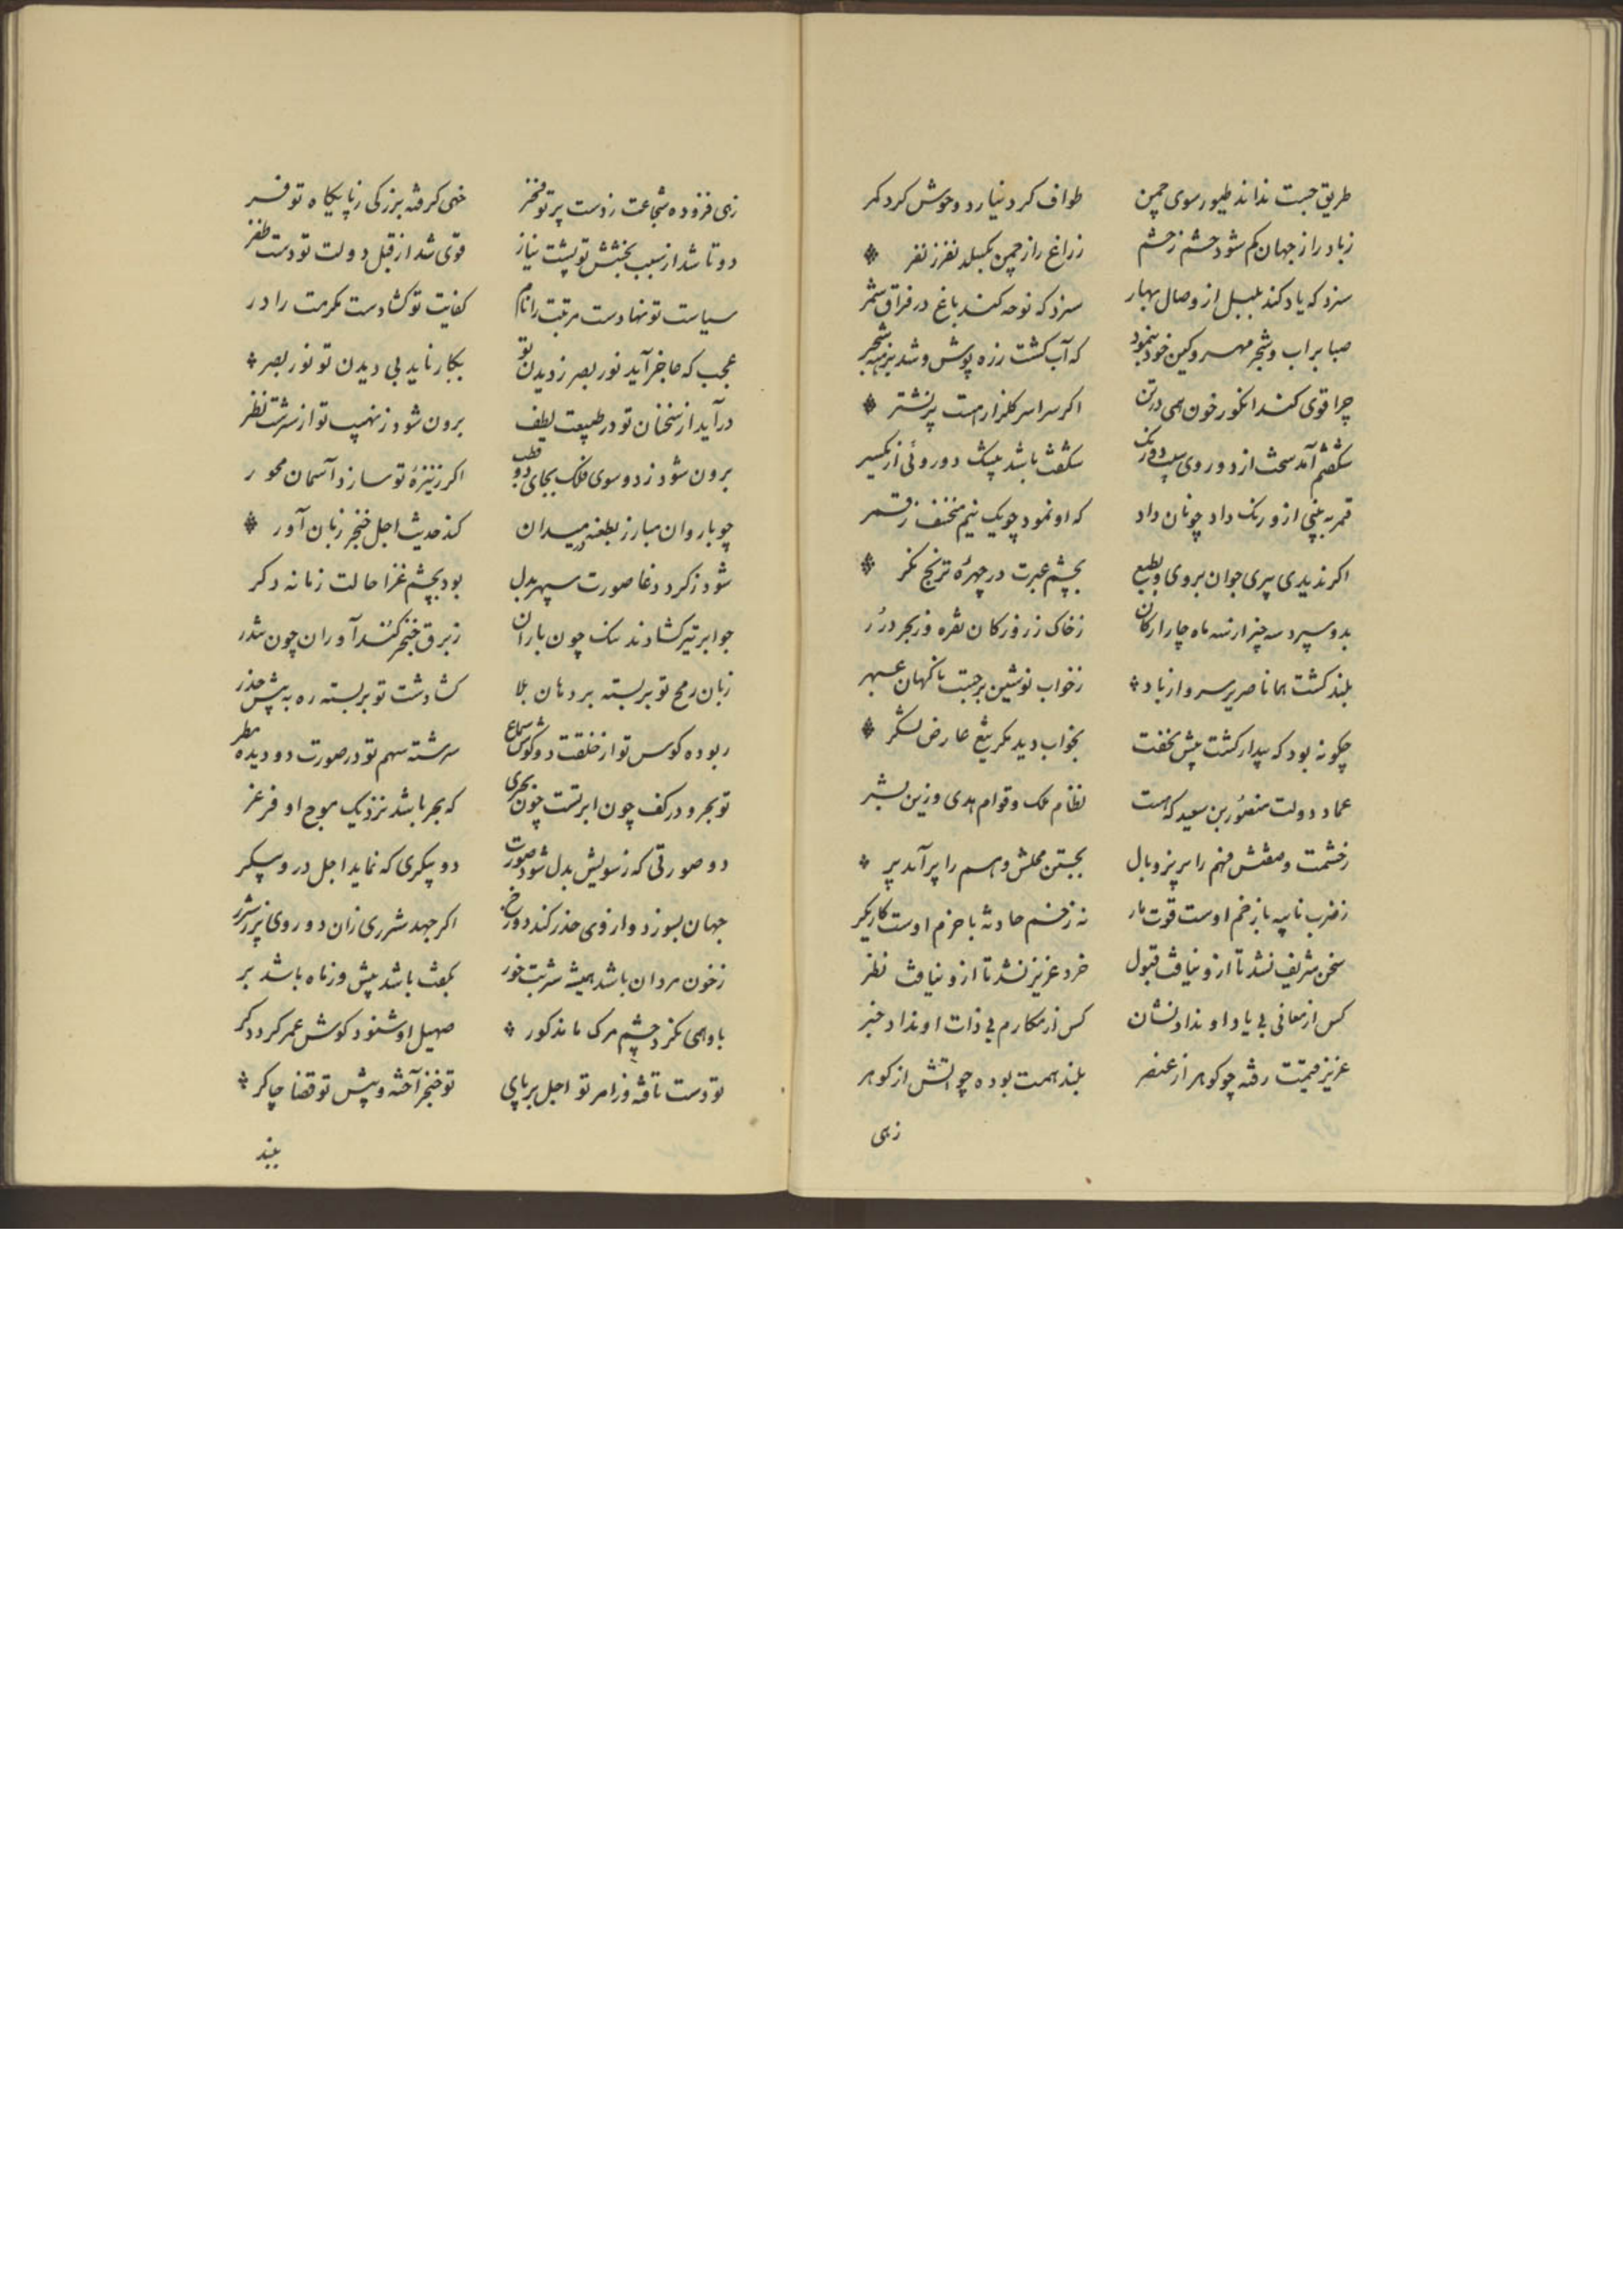 طریق جست نداند طیور سوی چمن طواف کرد نیارد وحوش کرد کمر
زباد راز جهان کم شود حشم زحشم زراغ راز چمن بکسلد نفر زنفر
سزد که یاد کند بلبل از وصال بهار سزد که نوحه کند باغ در فراق ثمر
صبا براب و شجر مهر و کین خود بنمود که آب کشت زره پوش و شد برهنه شجر
چرا قوی کند انکور خون همی در تن اکر سراسر کلزار هست پر نشتر
شکفتم آمد سخت از دو روی سیب دو رنک شکفت باشد پیشک دوروئی از یکسر
قمر به نیمی ازو رنک داد چونان داد که او نمود چویک نیم منخسف زقمر
اکر ندیدی پیری جوان بروی و بطبع بچشم عبرت در چهرهٔ ترنج نکر
بدو سپرد سه چیز از سه ماه چار ارکان زخاک زر و زرکان نقره و زبحر درر
بلند کشت همانا صریر سرو از باد زخواب نوشین برجست ناکهان عبهر
چکونه بود که بیدار کشت پیش نخفت بخواب دید مکر تیغ عارض لشکر
عماد دولت منصور بن سعید که هست نظام ملک و قوام هدی و زین بشر
زحشمت و صفتش فهم را بریزد بال بجستن محلش وهم را برآید پر
زضرب نایبه با زخم اوست قوت مار نه زخم حادثه با حزم اوست کاریکر
سخن شریف نشد تا ازو نیافت قبول خرد عزیز نشد تا ازو نیافت نظر
کس از معانی بی یاد او نداد نشان کس از مکارم بی ذات او نداد خبر
عزیز قیمت رفته چو کوهر از عنصر بلند همت بوده چو اتش از کوهر
زهی
زهی فزوده شجاعت زدست پر تو فخر خهی کرفته بزرکی زپایکاه تو فر
دو تا شد از سبب بخشش تو پشت نیاز قوی شد از قبل دولت تو دست ظفر
سیاست تو نهادست مرتبت را نام کفایت تو کشادست مکرمت را در
عجب که عاجز آید نور بصر زدیدن تو بکار ناید بی دیدن تو نور بصر
درآید از سخنان تو در طبیعت لطف برون شود زنهیب تو از سرشت نظر
برون شود زدو سوی فلک بجای دو قطب اکر زنیزهٔ تو سازد آسمان محور
چو باروان مبارز بطعنه در میدان کند حدیث اجل خنجر زبان آور
شود زکرد دغا صورت سپهر بدل بود بچشم غزا حالت زمانه دکر
جو ابر تیر کشادند تنک چون باران زبرق خنجر کند آوران چون تندر
زبان رمح تو بر بسته بر دهان بلا کشاد شت تو بر بسته ره به پیش حذر
ربوده کوس تو از خلقت دو کوش سماع سرشته سهم تو در صورت دو دیده مطر
تو بحر و در کف چون ابر تست چون بحری که بحر باشد نزدیک موج او فرغر
دو صورتی که زسویش بدل شود صورت دو پیکری که نماید اجل درو پیکر
جهان بسوزد و از وی حذر کند دوزخ اکر جهد شرری زان دو روی پر زشرر
زخون مردان باشد همیشه شربت خور بکفت باشد پیش و زماه باشد بر
باو همی نکرد چشم مرک ما نذکور صهیل او شنود کوش عمر کردد کر
تو دست تافه وز امر تو اجل بر پای تو خنجر آخته و پیش تو قضا چاکر
ببند